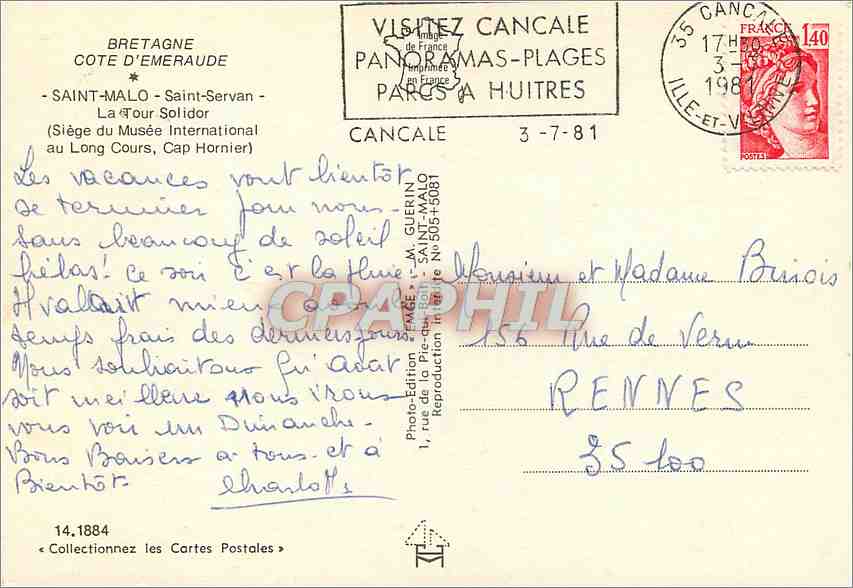 BRETAGNE
COTE D'EMERAUDE
*
- SAINT-MALO - Saint-Servan -
La Tour Solidor
(Siège du Musée International
au Long Cours, Cap Hornier)
VISITEZ CANCALE
PANORAMAS-PLAGES
PARCS A HUITRES
Image
de France
Imprimée
en France
CANCALE 3 -7-81
35 CANCALE
17H30
3 -
1981
ILLE-ET-VILAINE
FRANCE
1,40
POSTES
Les vacances vont bientôt
se terminer pour nous -
sans beaucoup de soleil
hélas! Ce soir c'est la pluie.
Il valait mieux avoir le
temps frais des derniers jours.
Nous souhaitons qu'Août
soit meilleur. Nous irons
vous voir un Dimanche -
Bons Baisers à tous et à
Bientôt
Photo-Edition « EMGE » - M. GUERIN
1, rue de la Pie-qui-Boit - SAINT-MALO
Reproduction interdite No 505+5081
CPAPHIL
Monsieur et Madame
156 Rue de Vern
RENNES
35100
14.1884
« Collectionnez les Cartes Postales »